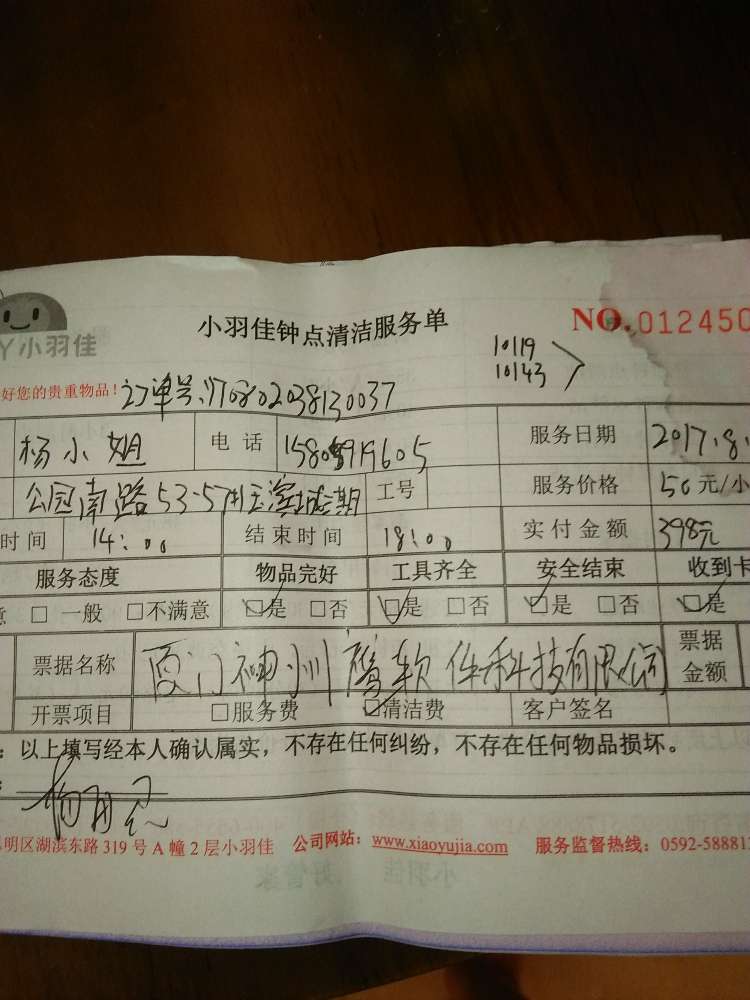 小羽佳钟点清洁服务单
NO. 012450
小羽佳
10119
10143
好您的贵重物品！
订单号:170802038130037
杨小姐 电话 服务日期 2017.8.
公园南路53-57 期 工号 服务价格 50元/小
时间 14:00 结束时间 18:00 实付金额 398元
服务态度 物品完好 工具齐全 安全结束 收到卡
意 □一般 □不满意 ☑是 □否 ☑是 □否 ☑是 □否 ☑是
票据名称 厦门神州鹰软件科技有限公司 票据金额
开票项目 □服务费 ☑清洁费 客户签名
：以上填写经本人确认属实，不存在任何纠纷，不存在任何物品损坏。
明区湖滨东路319号A幢2层小羽佳 公司网站：www.xiaoyujia.com 服务监督热线：0592-58881